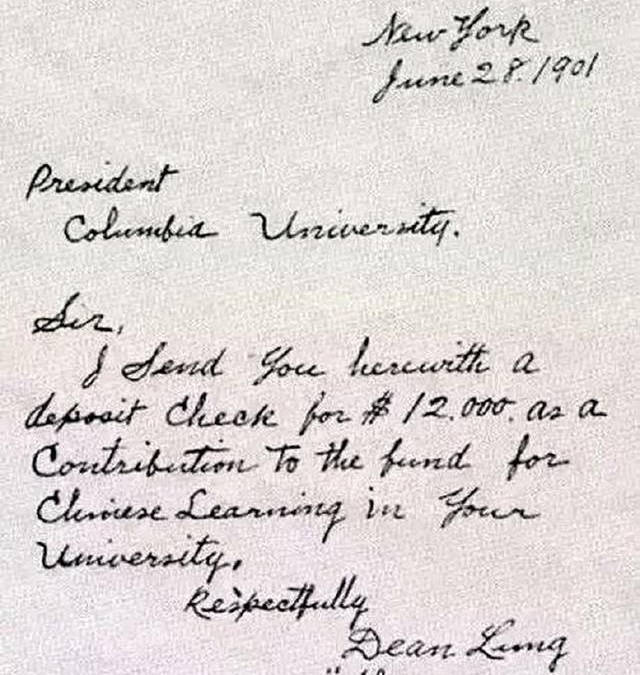 New York
June 28. 1901
President
Columbia University.
Sir,
I Send You herewith a
deposit Check for $ 12.000. as a
Contribution To the fund for
Chinese Learning in Your
University.
Respectfully
Dean Lung